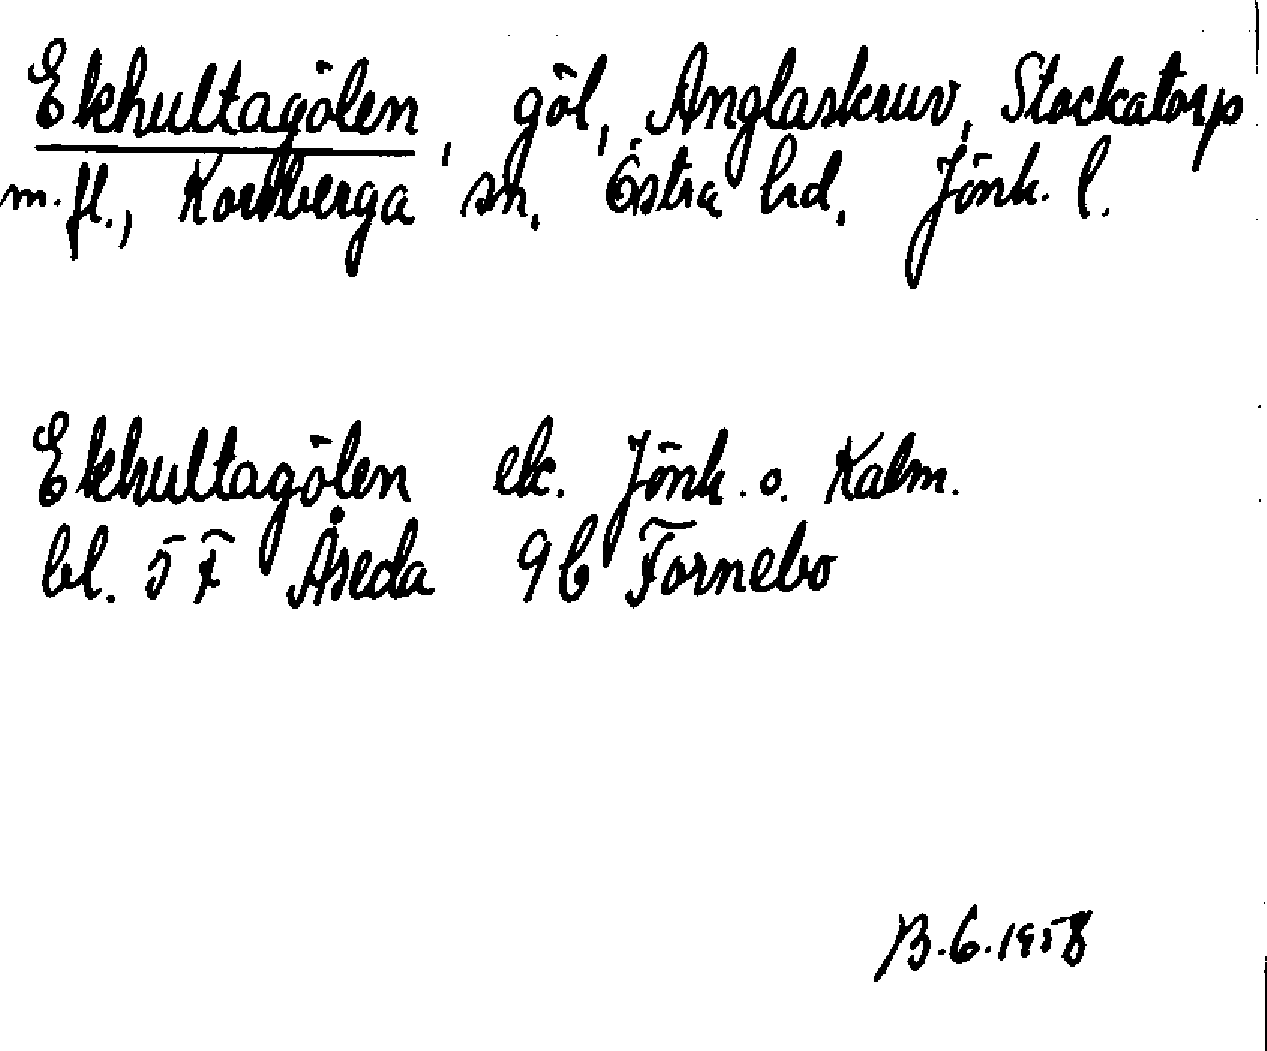 Ekhultagölen, göl, Änglaskruv, Stockatorp
m.fl., Korsberga sn. Östra hd. Jönk. l.
Ekhultagölen ek. Jönk. o. Kalm.
bl. 5 F Åseda 9b Fornebo
B.G. 1958